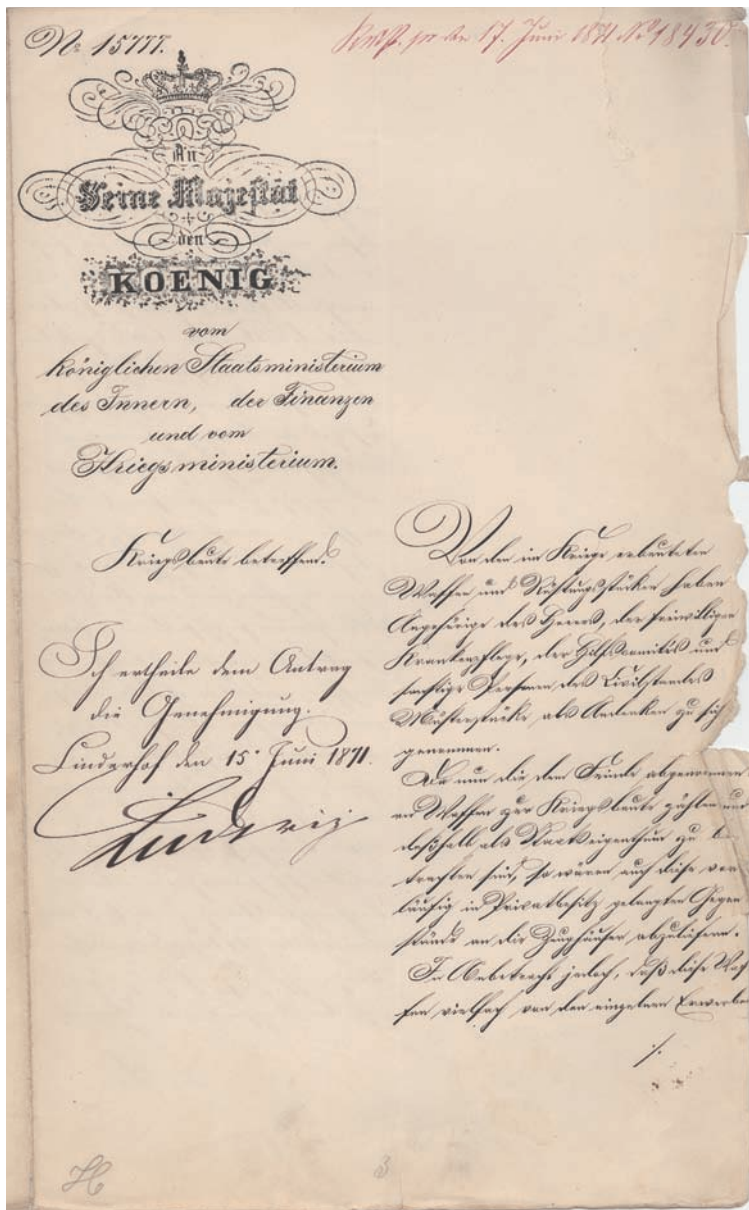 № 15777.
präs. den 17. Juni 1871 № 18430.
An
Seine Majestät
den
KOENIG
vom
königlichen Staatsministerium
des Innern, der Finanzen
und vom
Kriegsministerium.
Kriegsbeute betreffend.
Ich ertheile dem Antrag
die Genehmigung.
Linderhof den 15. Juni 1871.
Ludwig
Von den im Kriege erbeuteten
Waffen und Rüstungsstücken haben
Angehörige des Heeres, der freiwilligen
Krankenpflege, der Hilfscomités und
sonstige Personen des Civilstandes
Musterstücke als Andenken zu sich
genommen.
Da nun die dem Feinde abgenommen
en Waffen zur Kriegsbeute zählen und
deßhalb als Staatseigenthum zu be-
trachten sind, so wären auch diese vor
läufig in Privatbesitz gelangten Gegen
stände an die Zeughäuser abzuliefern.
In Anbetracht jedoch, daß diese Waf
fen vielfach von den einzelnen Erwerbern
./.
3